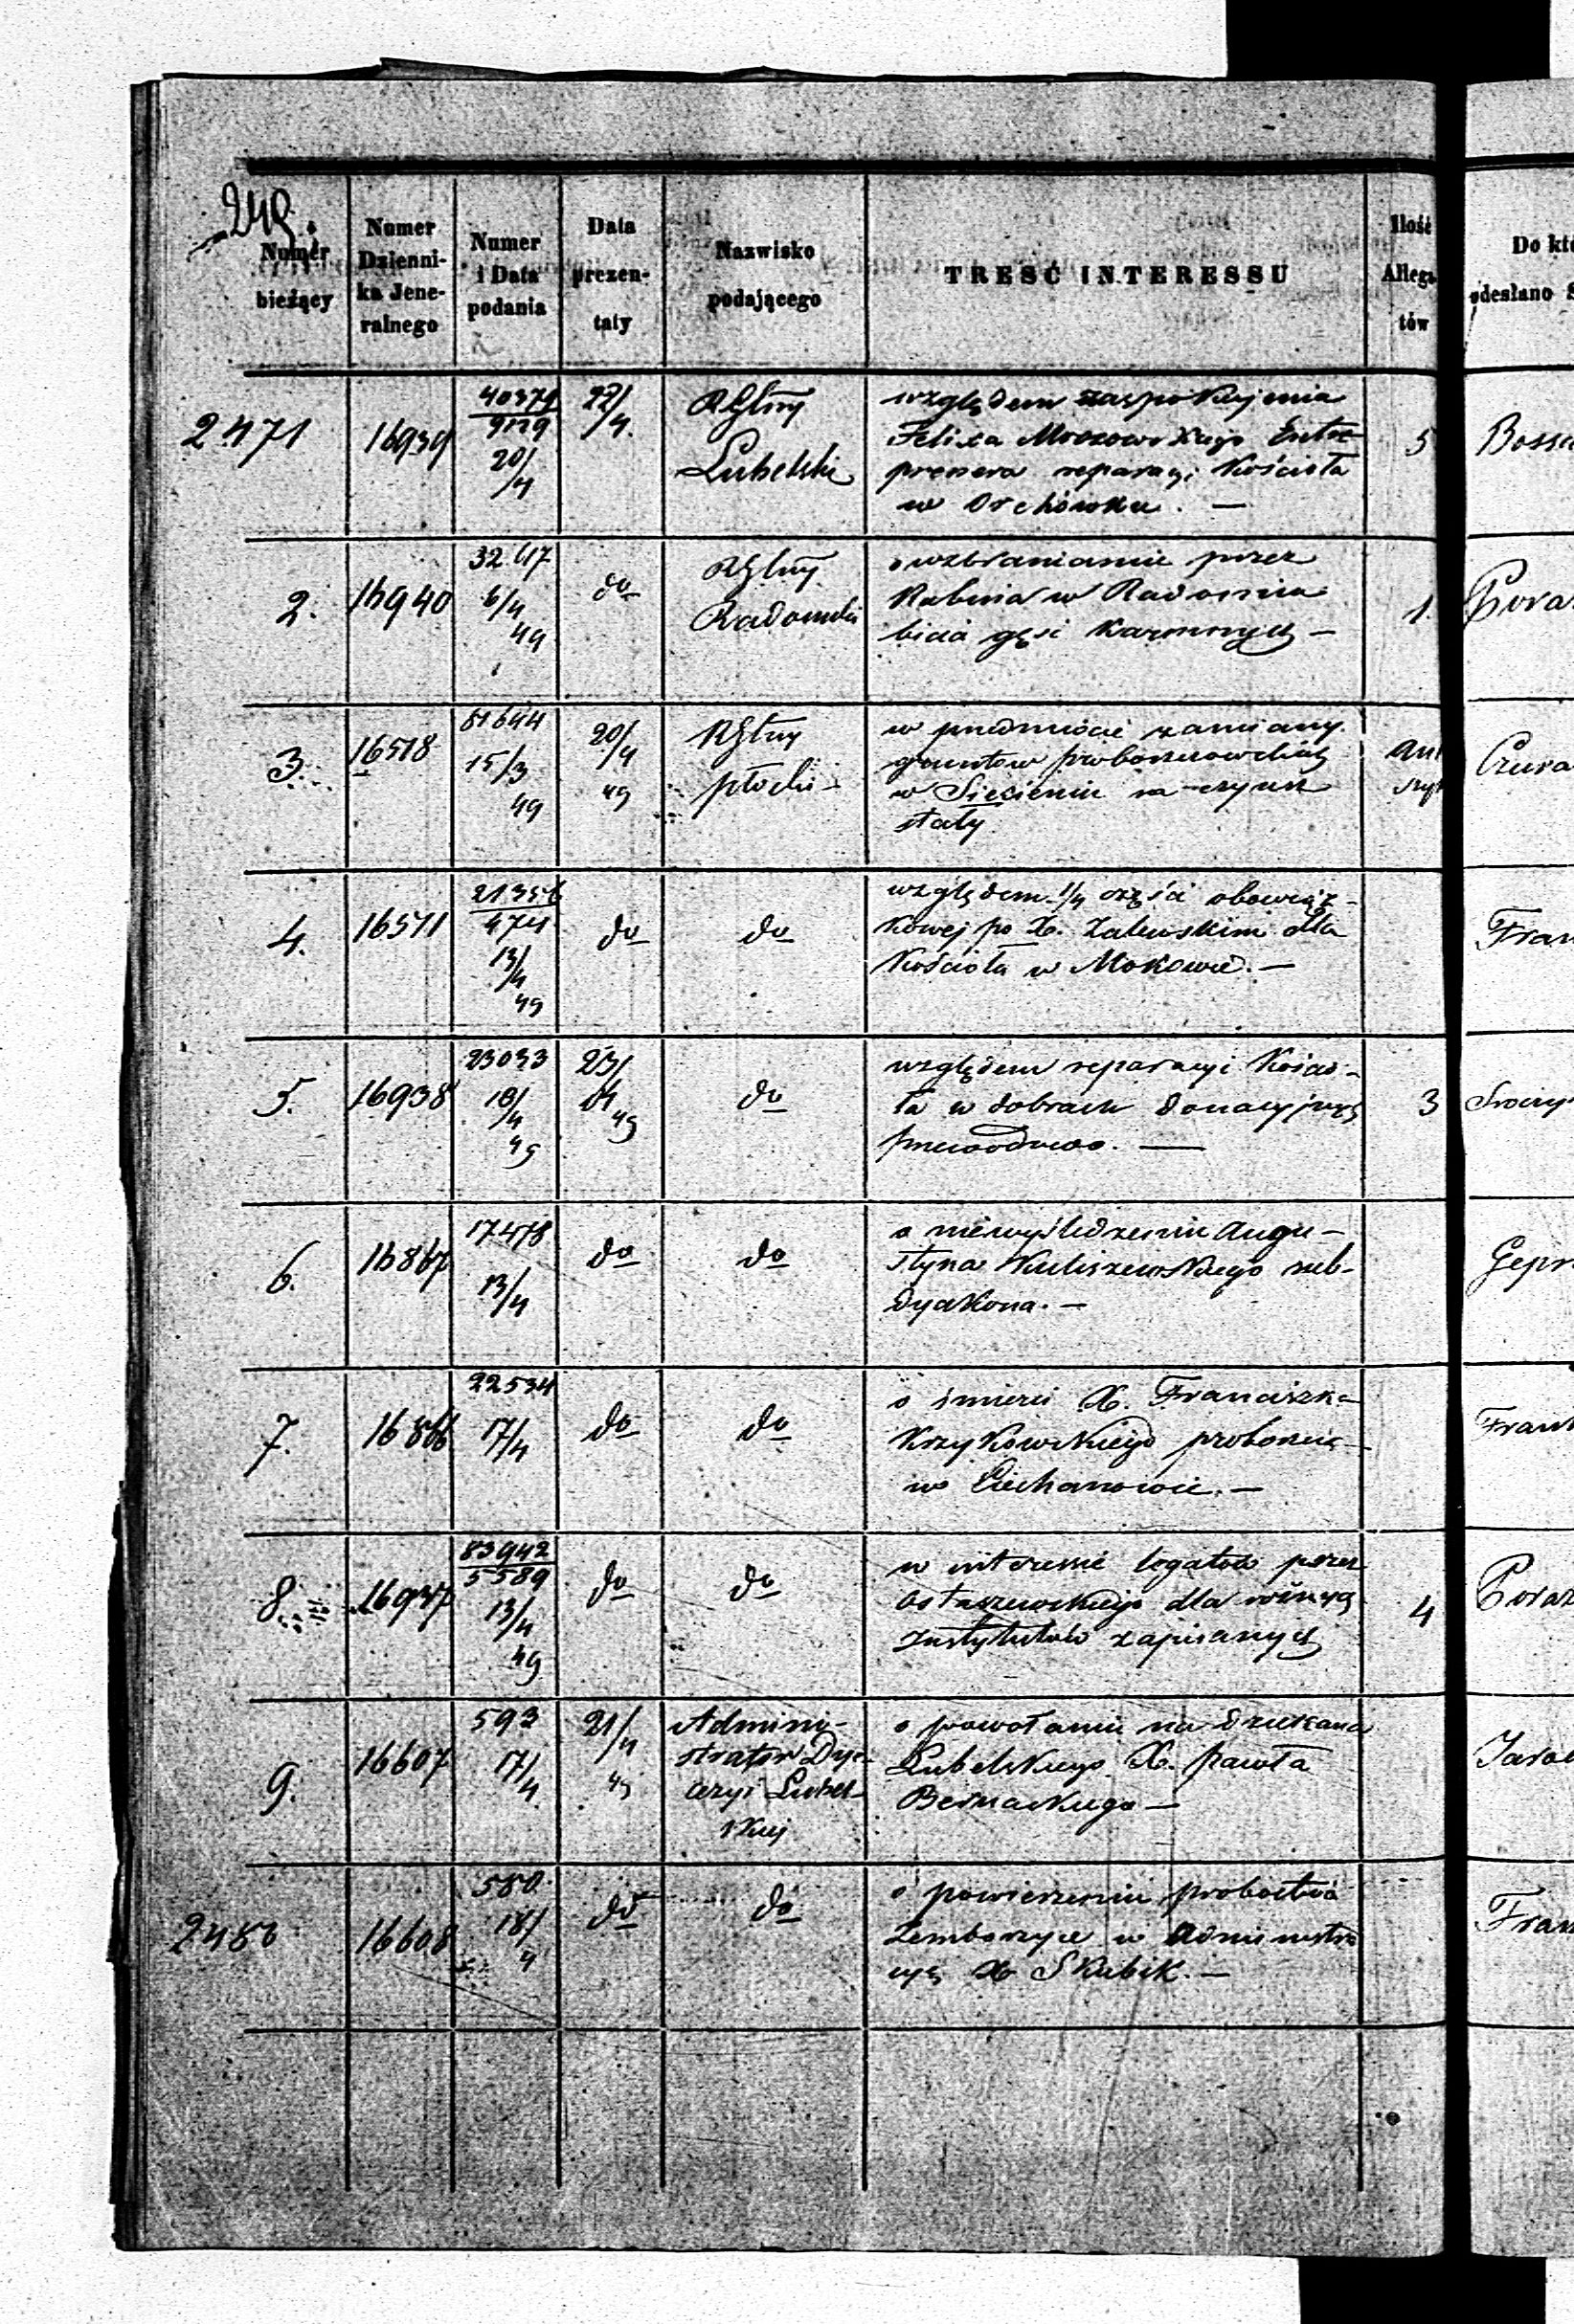 249.
Numer bieżący
Numer Dzienni-ka Jene-ralnego
Numer i Data podania
Data prezen-taty
Nazwisko podającego
TREŚĆ INTERESSU
Ilość Allega-tów
Do któ
odesłano S
2471
16939
40379
9129
20/4
22/4
RGlny
Lubelski
względem zaspokojenia
Felixa Mrozowskiego Entre
prenera reparacyi Kościoła
w Orchówku. —
5
2.
16940
32.617
6/4
49
do
RGlny
Radomski
o wzbranianie przez
Rabina w Radomiu
bicia gęsi karmnych —
1.
3.
16518
81644
15/3
49
20/4
49
RGlny
płocki
w przedmiocie zamiany
gruntów proboszczowskich
w Siecieniu na czynsz
stały
4.
16511
21356
4741
13/4
49
do
do
względem 1/4 części obowiąz-
kowej po X. Zaleuskim dla
Kościoła w Mokowie. —
Fran
5.
16938
23033
18/4
49
23/4
49
do
względem reparacyi Kościo-
ła w dobrach donacyjnych
przewodowo. —
3
6.
16867
17478
13/4
do
do
o niewyśledzeniu Augu-
styna Kuliszewskiego sub-
dyakona. —
7.
16866
22534
17/4
do
do
o śmierci X. Franciszka
Krzykowskiego proboszcza
w Ciechanowie. —
8.
16937
83942
5589
13/4
49
do
do
w interessie legatów przez
Ostaszewskiego dla różnych
Instytutów zapisanych
4
9.
16607
593
17/4
21/4
49
Admini-
strator Dye-
cezyi Lubel-
skiej
o powołaniu na dziekana
Lubelskiego X. Pawła
Biernackiego —
2480
16608
580
18/4
do
do
o powierzeniu probostwa
Zemborzyce w administra
cyą X Skubik. —
Fran